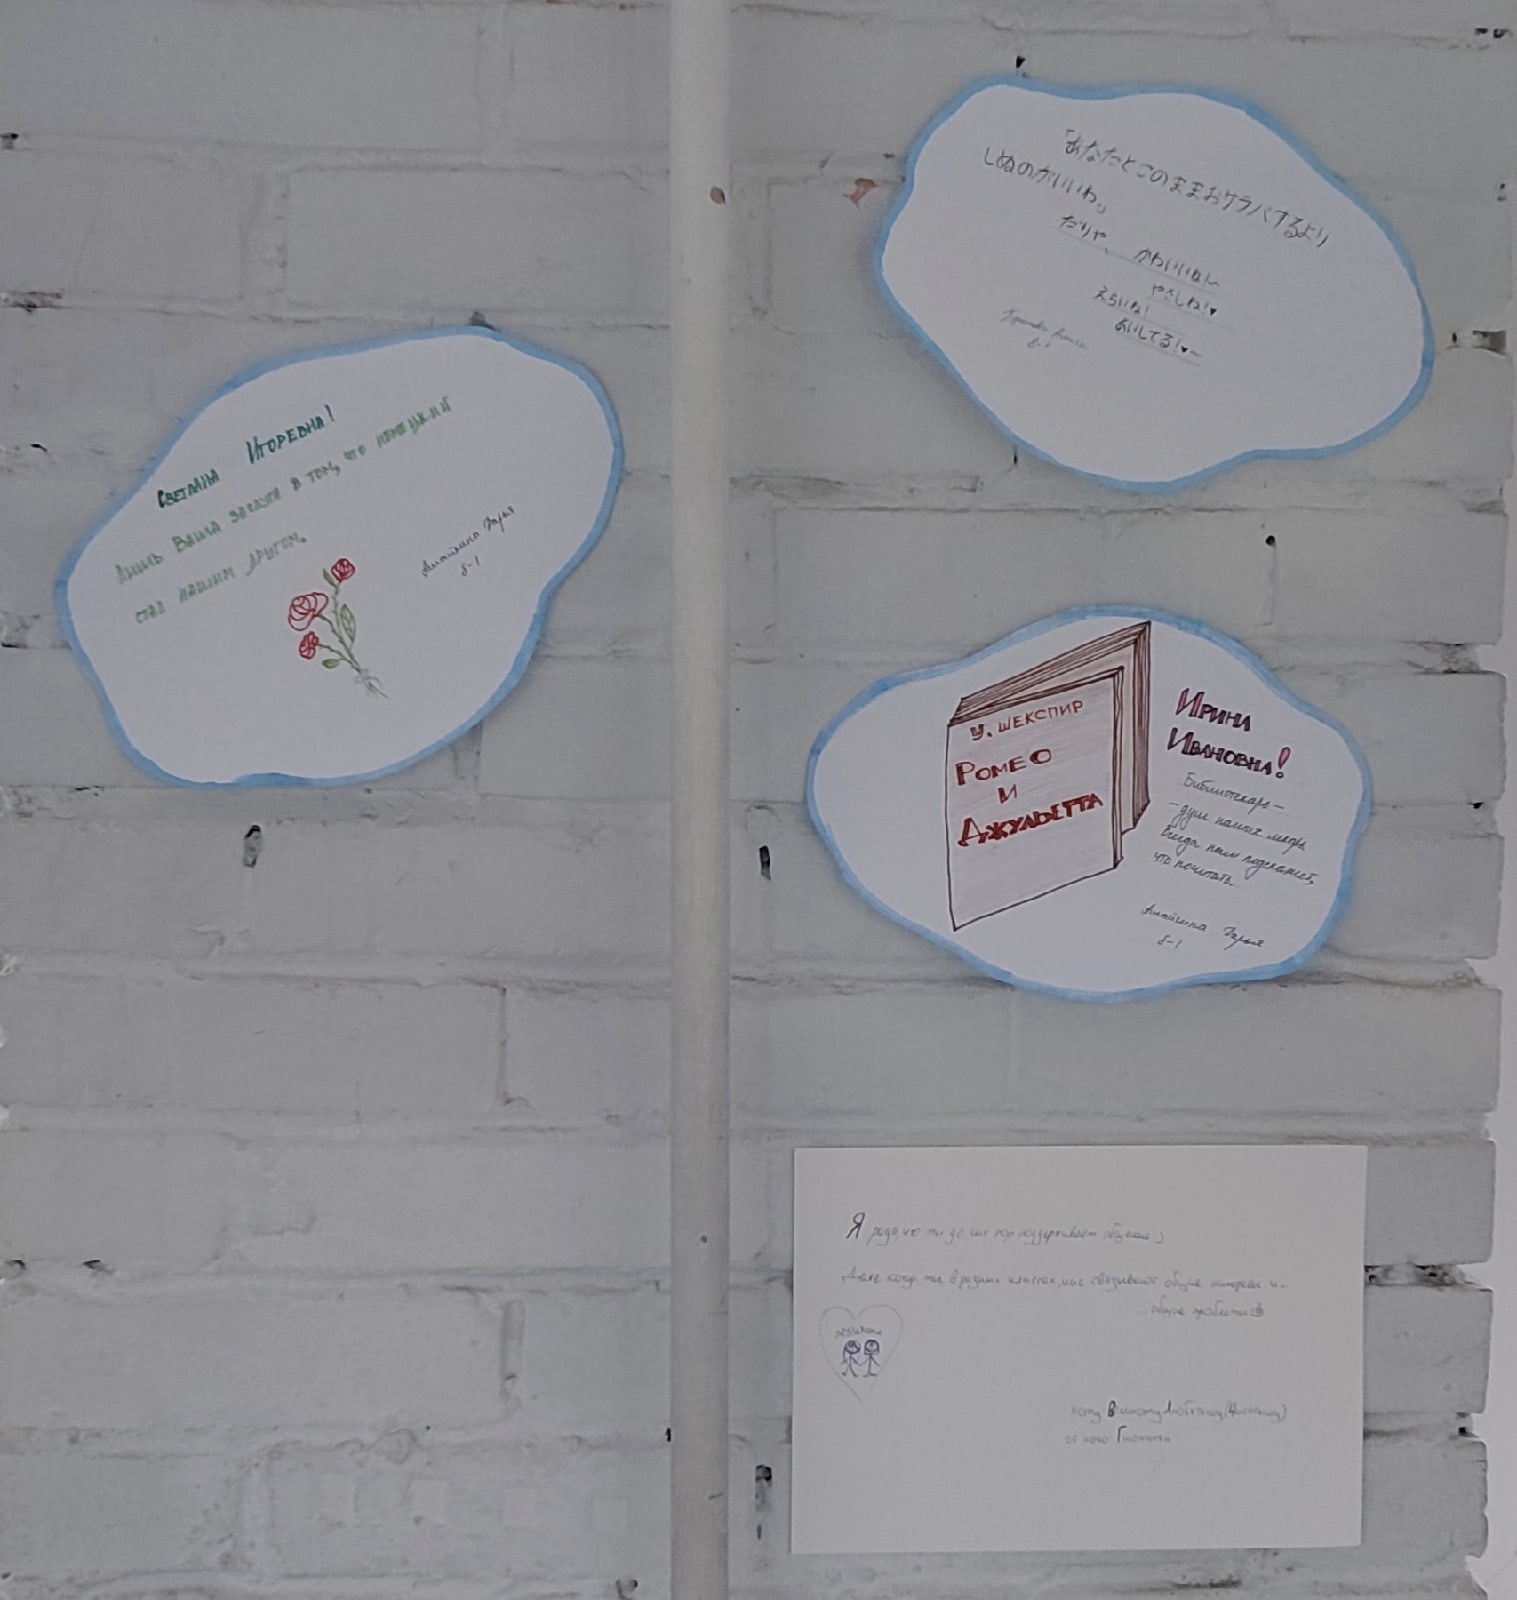 Светлана Игоревна!
Лишь Ваша заслуга в том, что немецкий
стал нашим другом.
Дарья
8-1
「あなたとこのままおサラバするより
しぬのがいいわ」
だりや、かわいいね!~
やさしね!♥
えらいね!
あいしてる!♥~
8-1
У. Шекспир
Ромео
и
Джульетта
Ирина
Ивановна!
Библиотекарь –
– душ наших лекарь
Всегда нам подскажет,
что почитать
Дарья
8-1
Я рада, что мы до сих пор поддерживаем общение :)
Даже когда мы в разных классах, нас связывают общие интересы и...
...общие проблемы
кому:
от кого: